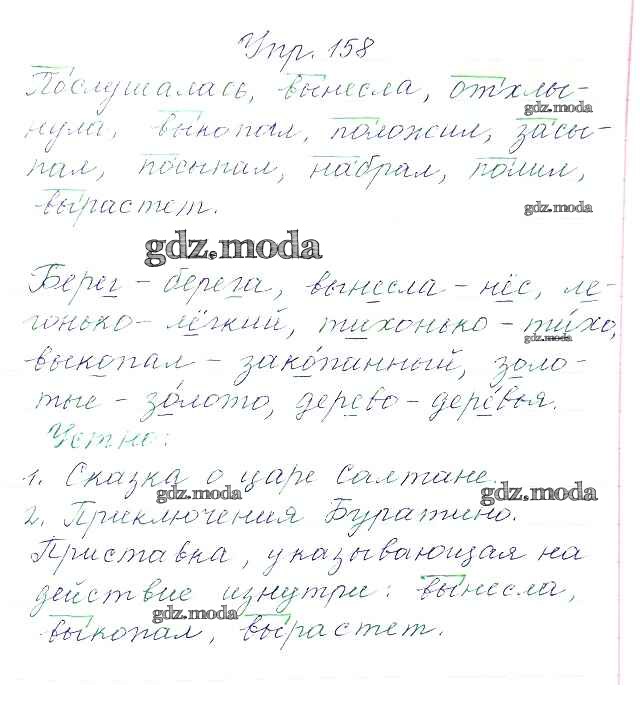 Упр. 158
Послушалась, вынесла, отхлы-
gdz.moda
нула, выкопал, положил, засы-
пал, посыпал, набрал, полил,
вырастет.
gdz.moda
gdz.moda
Берег – берега, вынесла – нёс, ле-
гонько – лёгкий, тихонько – тихо,
gdz.moda
выкопал – закопанный, золо-
тые – золото, дерево – деревья.
Устно:
1. Сказка о царе Салтане.
gdz.moda
gdz.moda
2. Приключения Буратино.
Приставка, указывающая на
действие изнутри: вынесла,
gdz.moda
выкопал, вырастет.